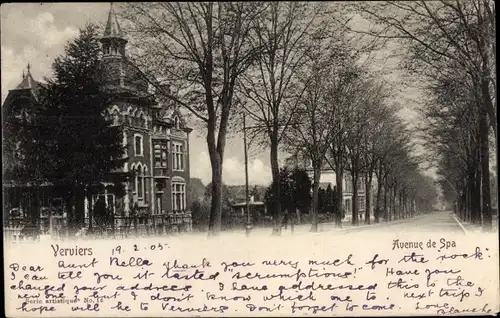 Verviers 19.2.05. Avenue de Spa
Dear Aunt Nella thank you very much for the rock.
I can tell you it tasted "scrumptious"! Have you
changed your address. I have addressed this to the
new one but I don't know which one to next trip I
Serie artistique No. 15
hope will be to Verviers. Don't forget to come. Blanche